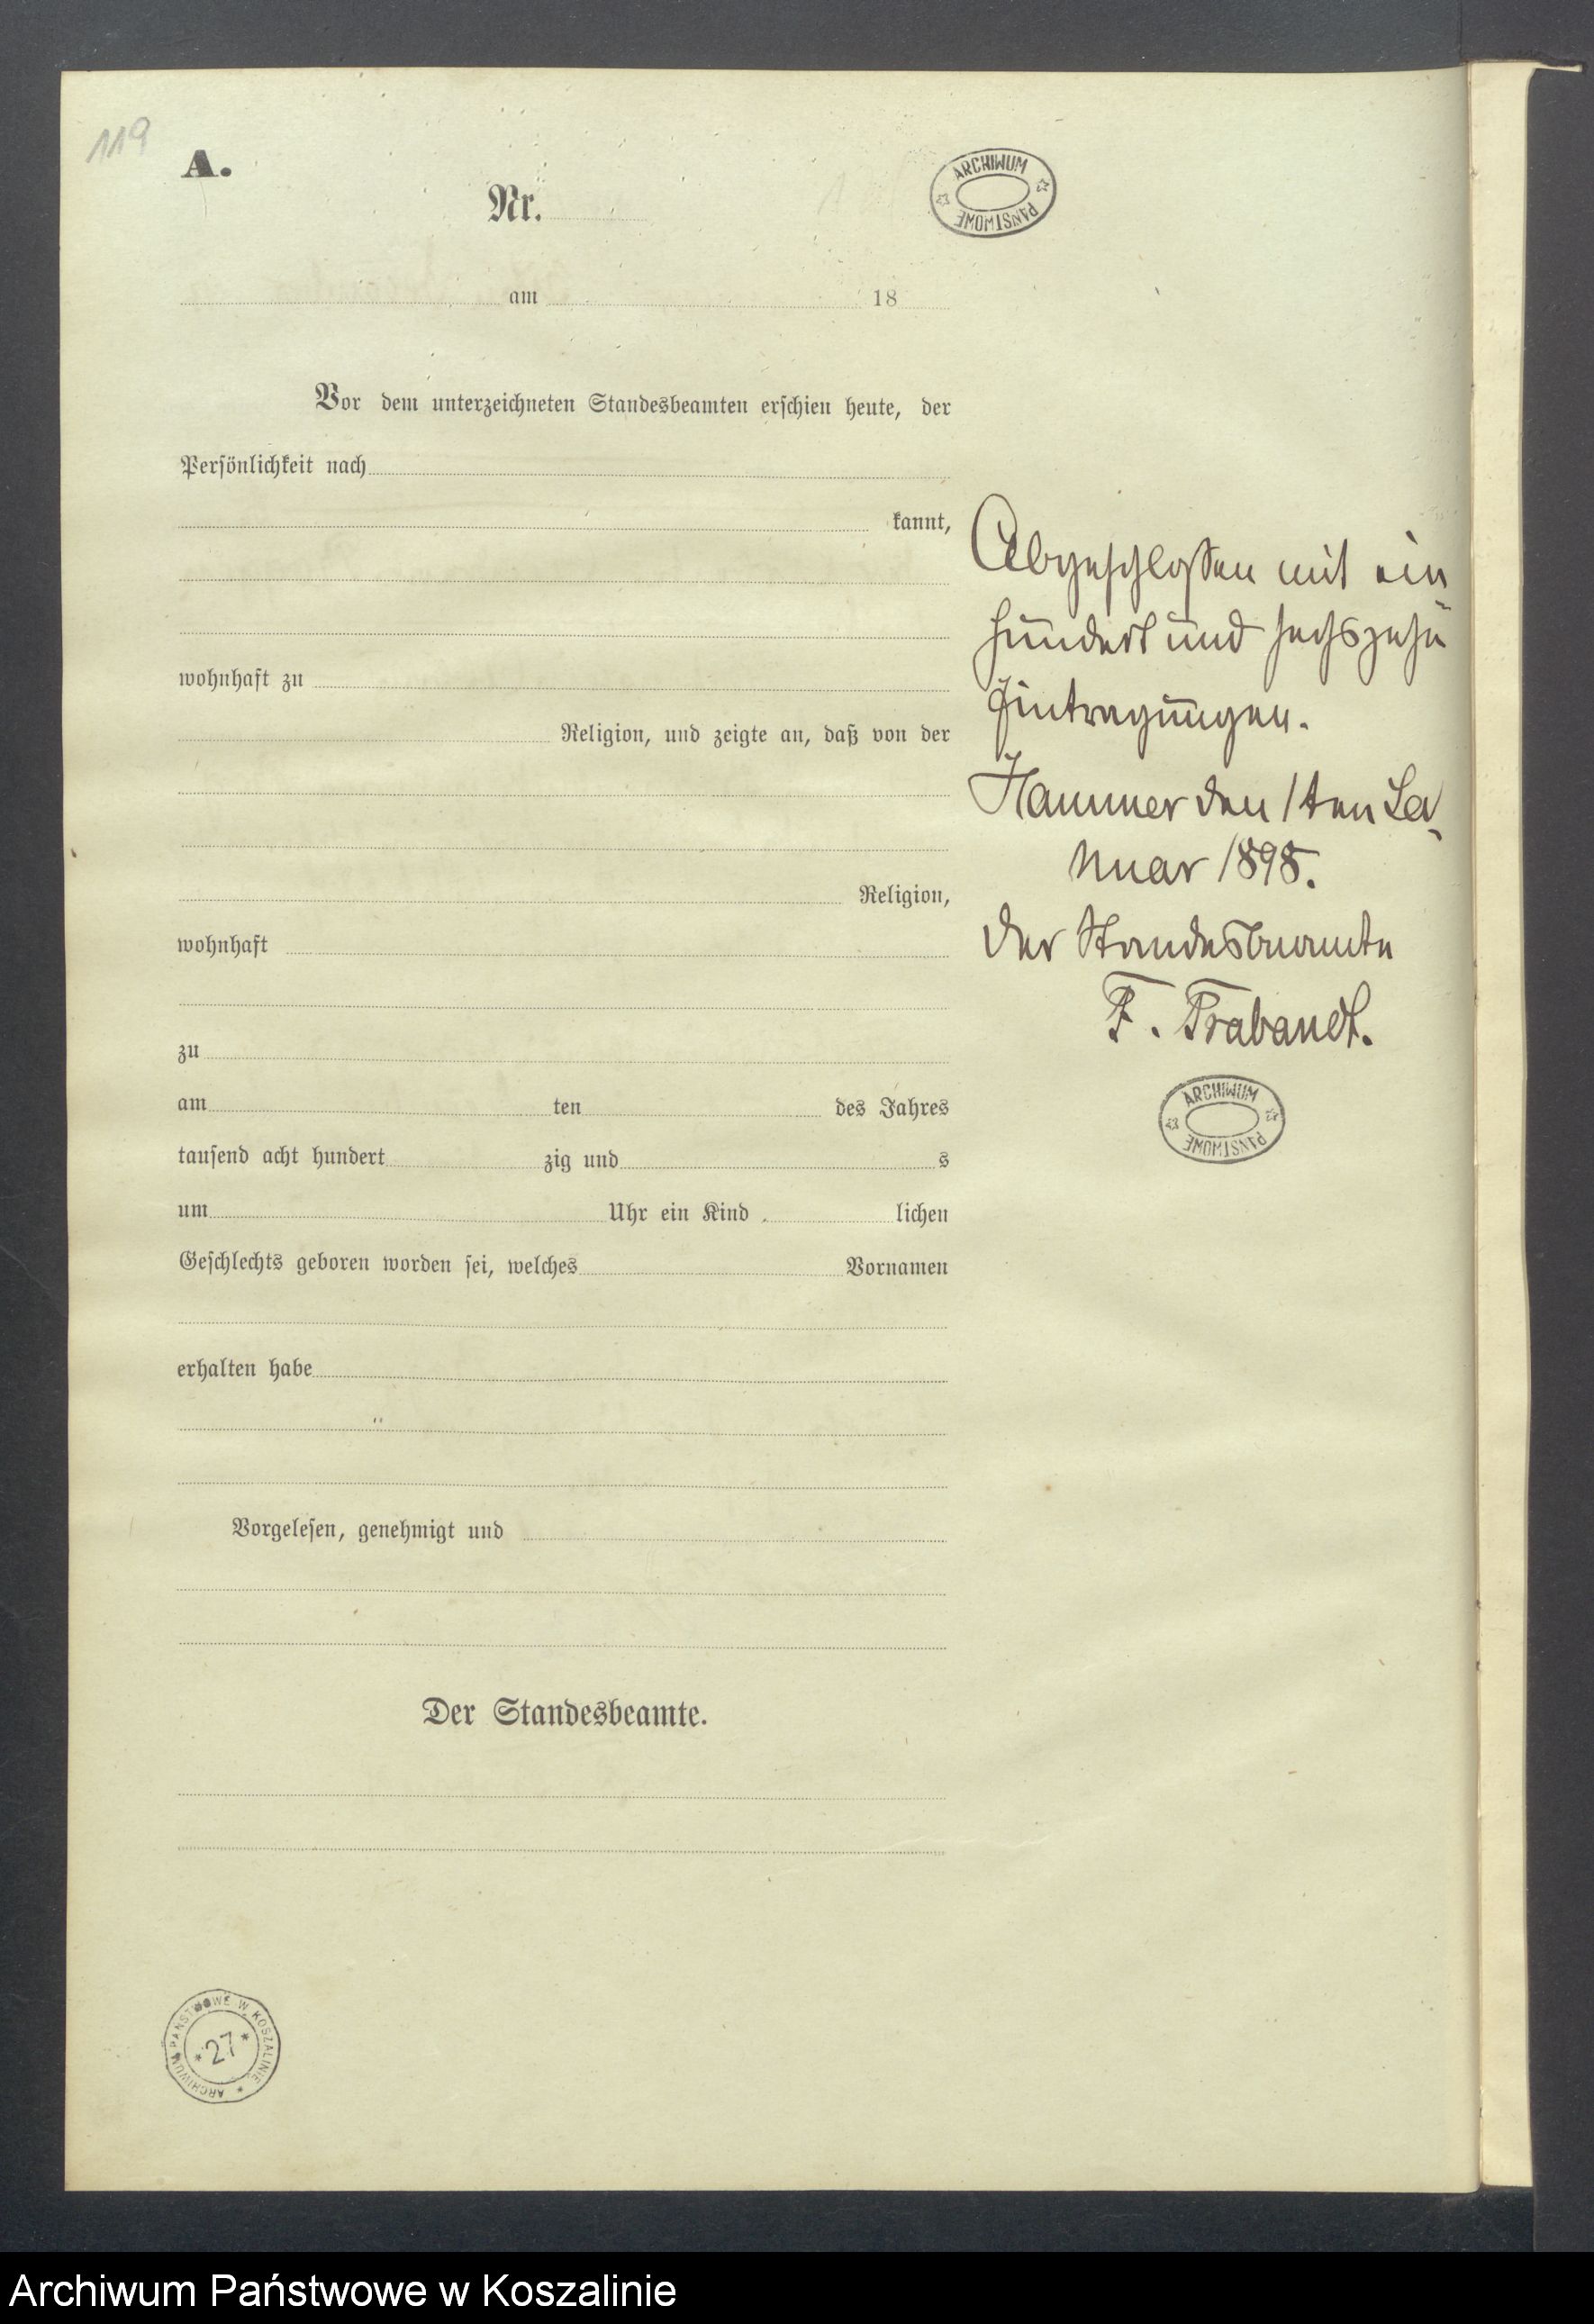 119
A.
Nr.
am 18
Vor dem unterzeichneten Standesbeamten erschien heute, der
Persönlichkeit nach
kannt,
wohnhaft zu
Religion, und zeigte an, daß von der
Religion,
wohnhaft
zu
am ten des Jahres
tausend acht hundert zig und s
um Uhr ein Kind lichen
Geschlechts geboren worden sei, welches Vornamen
erhalten habe
Vorgelesen, genehmigt und
Der Standesbeamte.
ARCHIWUM PAŃSTWOWE
Abgeschlossen mit ein
hundert und sechszehn
Eintragungen.
Hammer den 1ten Ja
nuar 1898.
Der Standesbeamte
F. Trabandt.
ARCHIWUM PAŃSTWOWE
ARCHIWUM PAŃSTWOWE W KOSZALINIE
*27*
Archiwum Państwowe w Koszalinie